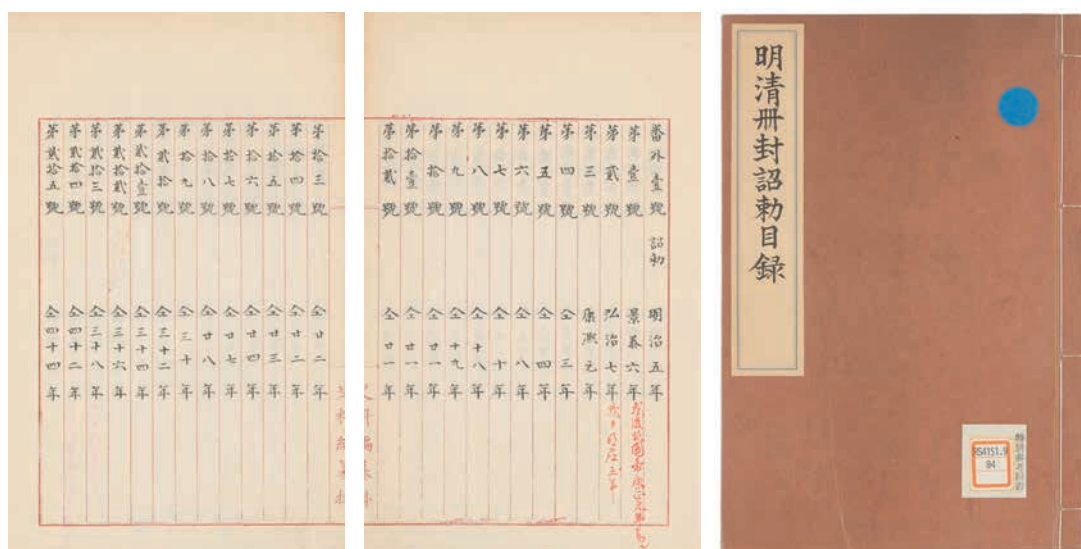 明清冊封詔勅目録
RS4151.9
84
番外壹號 詔勅 明治五年
第壹號 景泰六年
第貳號 弘治七年
第三號 康熙元年
第四號 仝三年
第五號 仝四年
第六號 仝八年
第七號 仝十年
第八號 仝十八年
第九號 仝十九年
第拾號 仝廿一年
第拾壹號 仝廿一年
第拾貳號 仝廿一年
第拾三號 仝廿二年
第拾四號 仝廿二年
第拾五號 仝廿三年
第拾六號 仝廿四年
第拾七號 仝廿七年
第拾八號 仝廿八年
第拾九號 仝三十年
第貳拾號 仝三十二年
第貳拾壹號 仝三十四年
第貳拾貳號 仝三十六年
第貳拾三號 仝三十八年
第貳拾四號 仝四十二年
第貳拾五號 仝四十四年